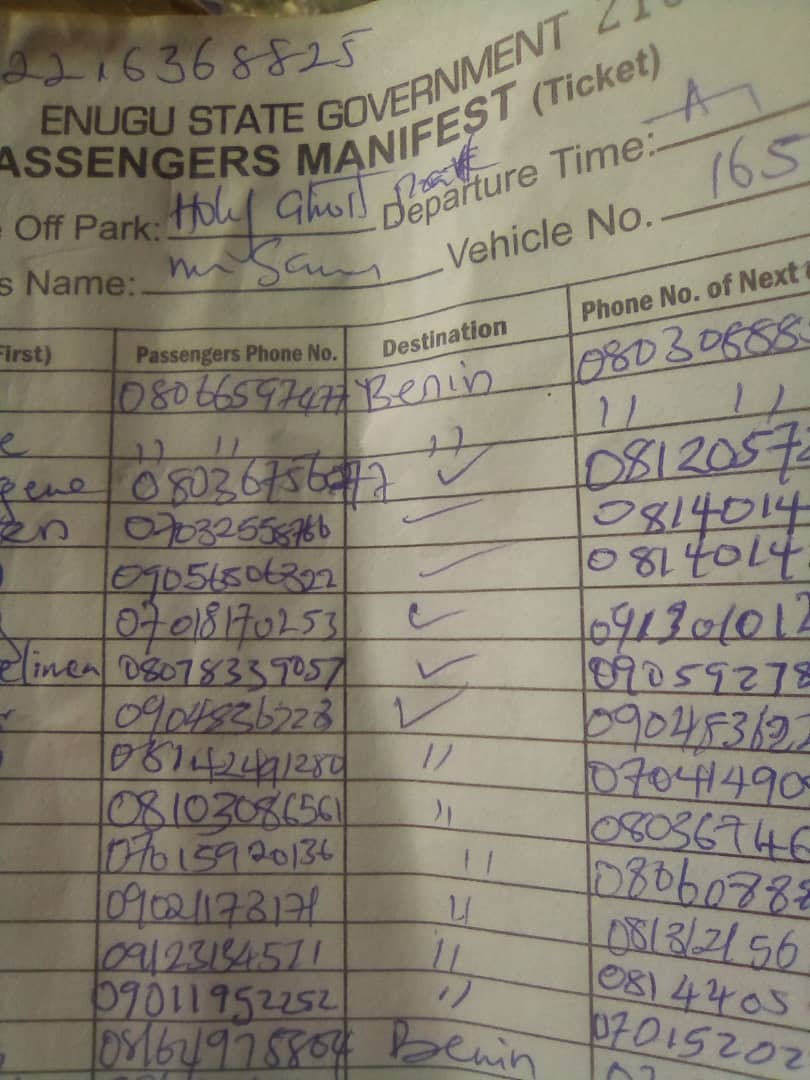 2216368825
ENUGU STATE GOVERNMENT
ASSENGERS MANIFEST (Ticket)
Off Park: Holy Ghost Departure Time:
s Name: Mr Sam Vehicle No. 165
First) Passengers Phone No. Destination Phone No. of Next
08066597477 Benin 080308885
e ,, ,, ,, ,, ,,
gene 77 ✓ 0812057
en 07032558766 ✓ 0814014
09056506322 ✓ 0814014
07018170253 ✓ 091301012
elinea 08078339057 ✓ 09059278
09048362 ✓ 090483622
08142491280 ,, 070414908
08103086561 ,, 08036746
07015920136 ,, 08060788
0902117317 ,, 081312156
,, 0814405
09011952252 ,, 07015202
081649 Benin